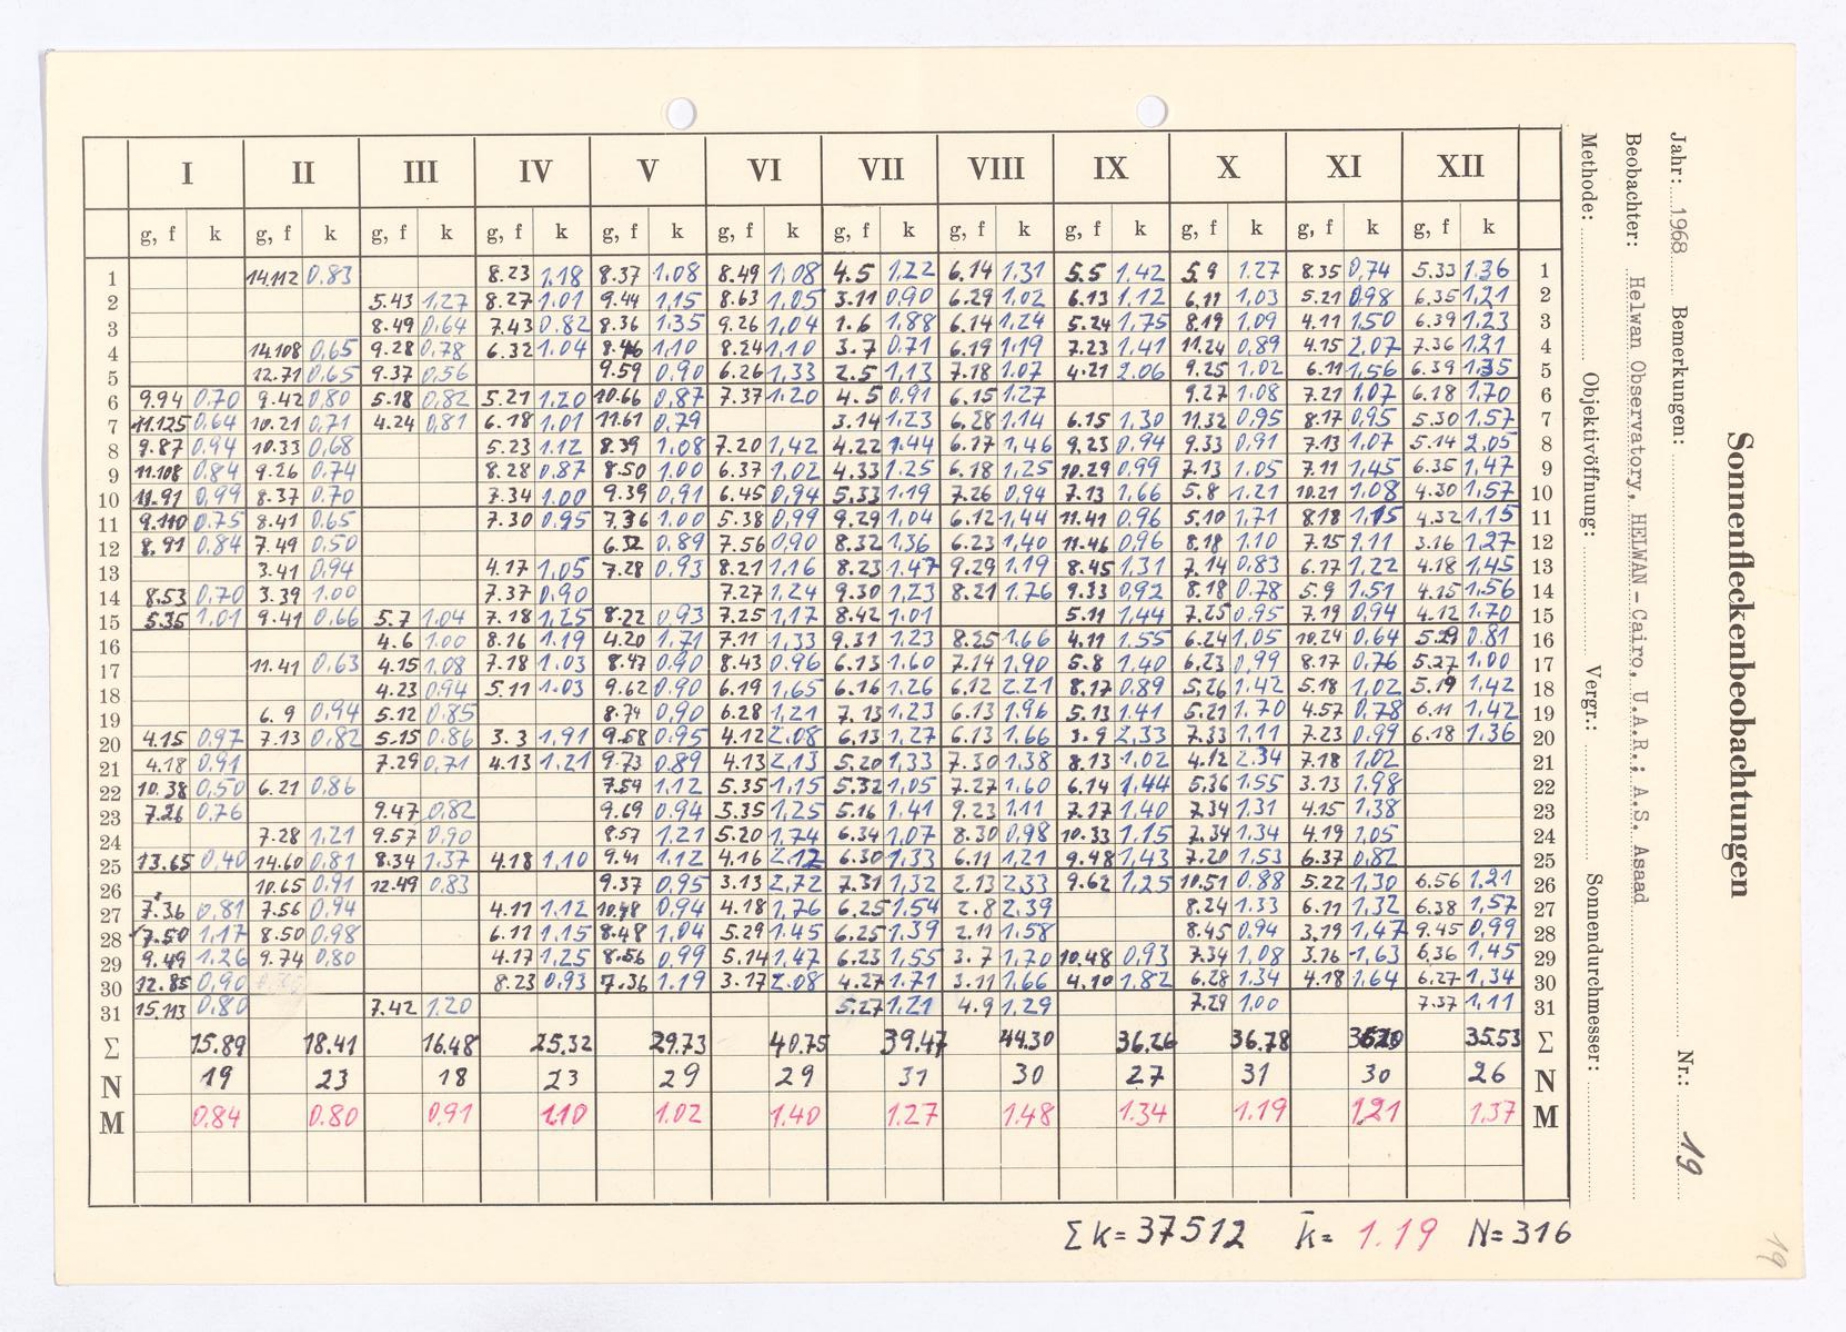 I II III IV V VI VII VIII IX X XI XII
g, f k g, f k g, f k g, f k g, f k g, f k g, f k g, f k g, f k g, f k g, f k g, f k
1 14.112 0,83 8.23 1,18 8.37 1,08 8.49 1,08 4.5 1,22 6.14 1,31 5.5 1,42 5.9 1.27 8.35 0,74 5.33 1.36 1
2 5.43 1,27 8.27 1.01 9.44 1,15 8.63 1,05 3.11 0,90 6.29 1,02 6.13 1,12 6.11 1,03 5.21 0,98 6.35 1,21 2
3 8.49 0,64 7.43 0,82 8.36 1,35 9.26 1,04 1.6 1,88 6.14 1,24 5.24 1,75 8.19 1.09 4.11 1,50 6.39 1.23 3
4 14.108 0,65 9.28 0,78 6.32 1.04 8.46 1,10 8.24 1,10 3.7 0,71 6.19 1.19 7.23 1,41 11.24 0,89 4.15 2,07 7.36 1,21 4
5 12.71 0,65 9.37 0,56 9.59 0,90 6.26 1,33 2.5 1,13 7.18 1.07 4.21 2.06 9.25 1,02 6.11 1,56 6.39 1.35 5
6 9.94 0,70 9.42 0,80 5.18 0,82 5.21 1,20 10.66 0,87 7.37 1.20 4.5 0.91 6.15 1,27 9.27 1.08 7.21 1,07 6.18 1,70 6
7 11.125 0,64 10.21 0,71 4.24 0,81 6.18 1,01 11.61 0,79 3.14 1.23 6.28 1.14 6.15 1,30 11.32 0,95 8.17 0,95 5.30 1,57 7
8 9.87 0,94 10.33 0,68 5.23 1.12 8.39 1,08 7.20 1,42 4.22 1.44 6.17 1,46 9.23 0.94 9.33 0,91 7.13 1.07 5.14 2,05 8
9 11.108 0,84 9.26 0,74 8.28 0,87 8.50 1.00 6.37 1,02 4.33 1.25 6.18 1,25 10.29 0,99 7.13 1.05 7.11 1,45 6.35 1,47 9
10 11.91 0,99 8.37 0,70 7.34 1.00 9.39 0,91 6.45 0,94 5.33 1.19 7.26 0,94 7.13 1,66 5.8 1.21 10.21 1,08 4.30 1,57 10
11 9.110 0,75 8.41 0,65 7.30 0,95 7.36 1.00 5.38 0,99 9.29 1,04 6.12 1,44 11.41 0.96 5.10 1,71 8.18 1,15 4.32 1,15 11
12 8.91 0,84 7.49 0,50 6.32 0,89 7.56 0,90 8.32 1,36 6.23 1,40 11.46 0,96 8.18 1.10 7.15 1.11 3.16 1,27 12
13 3.41 0,94 4.17 1,05 7.28 0,93 8.21 1,16 8.23 1.47 9.29 1.19 8.45 1,31 7.14 0,83 6.17 1,22 4.18 1.45 13
14 8.53 0,70 3.39 1.00 7.37 0,90 7.27 1,24 9.30 1,23 8.21 1.76 9.33 0,92 8.18 0,78 5.9 1.51 4.15 1,56 14
15 5.35 1,01 9.41 0,66 5.7 1,04 7.18 1,25 8.22 0,93 7.25 1,17 8.42 1.01 5.11 1,44 7.25 0,95 7.19 0,94 4.12 1.70 15
16 4.6 1.00 8.16 1,19 4.20 1,71 7.11 1,33 9.31 1.23 8.25 1.66 4.11 1.55 6.24 1,05 10.24 0,64 5.29 0.81 16
17 11.41 0,63 4.15 1,08 7.18 1,03 8.47 0,90 8.43 0,96 6.13 1.60 7.14 1,90 5.8 1,40 6.23 0,99 8.17 0,76 5.27 1.00 17
18 4.23 0,94 5.11 1.03 9.62 0.90 6.19 1,65 6.16 1.26 6.12 2.21 8.17 0,89 5.26 1.42 5.18 1,02 5.19 1,42 18
19 6.9 0,94 5.12 0,85 8.74 0,90 6.28 1,21 7.13 1,23 6.13 1.96 5.13 1.41 5.21 1.70 4.57 0,78 6.11 1,42 19
20 4.15 0,97 7.13 0,82 5.15 0.86 3.3 1,91 9.68 0.95 4.12 2.08 6.13 1,27 6.13 1.66 3.9 2,33 7.33 1,11 7.23 0,99 6.18 1.36 20
21 4.18 0,91 7.29 0,71 4.13 1.21 9.73 0,89 4.13 2,13 5.20 1,33 7.30 1.38 8.13 1,02 4.12 2.34 7.18 1,02 21
22 10.38 0,50 6.21 0,86 7.54 1,12 5.35 1,15 5.32 1,05 7.27 1,60 6.14 1,44 5.36 1.55 3.13 1.98 22
23 7.26 0,76 9.47 0,82 9.69 0.94 5.35 1,25 5.16 1.41 9.23 1.11 7.17 1,40 7.34 1.31 4.15 1,38 23
24 7.28 1,21 9.57 0,90 8.57 1,21 5.20 1,74 6.34 1,07 8.30 0,98 10.33 1,15 7.34 1.34 4.19 1,05 24
25 13.65 0,40 14.60 0,81 8.34 1.37 4.18 1,10 9.41 1,12 4.16 2.12 6.30 1,33 6.11 1,21 9.48 1,43 7.20 1,53 6.37 0,82 25
26 10.65 0,91 12.49 0,83 9.37 0,95 3.13 2,72 7.31 1,32 2.13 2,33 9.62 1,25 10.51 0.88 5.22 1,30 6.56 1.21 26
27 7.36 0,81 7.56 0,94 4.11 1.12 10.48 0,94 4.18 1,76 6.25 1.54 2.8 2,39 8.24 1.33 6.11 1,32 6.38 1,57 27
28 7.50 1,17 8.50 0,98 6.11 1,15 8.48 1,04 5.29 1.45 6.25 1,39 2.11 1.58 8.45 0,94 3.19 1,47 9.45 0,99 28
29 9.49 1,26 9.74 0,80 4.17 1.25 8.56 0,99 5.14 1,47 6.23 1,55 3.7 1,70 10.48 0,93 7.34 1,08 3.16 1,63 6.36 1,45 29
30 12.85 0,90 8.23 0,93 7.36 1.19 3.17 2.08 4.27 1.71 3.11 1,66 4.10 1,82 6.28 1,34 4.18 1,64 6.27 1,34 30
31 15.113 0,80 7.42 1.20 5.27 1,21 4.9 1,29 7.29 1.00 7.37 1,11 31
Σ 15.89 18.41 16.48 25.32 29.73 40.75 39.47 44.30 36.26 36.78 35.53 Σ
N 19 23 18 23 29 29 31 30 27 31 30 26 N
M 0.84 0.80 0.91 1.10 1.02 1.40 1.27 1.48 1.34 1.19 1.21 1.37 M
Σ k = 375 12 k̄ = 1.19 N = 316
Sonnenfleckenbeobachtungen
Jahr: 1968 Bemerkungen: Nr.: 19
Beobachter: Helwan Observatory, HELWAN - Cairo, U.A.R.; A.S. Asaad
Methode: Objektivöffnung: Vergr.: Sonnendurchmesser:
19